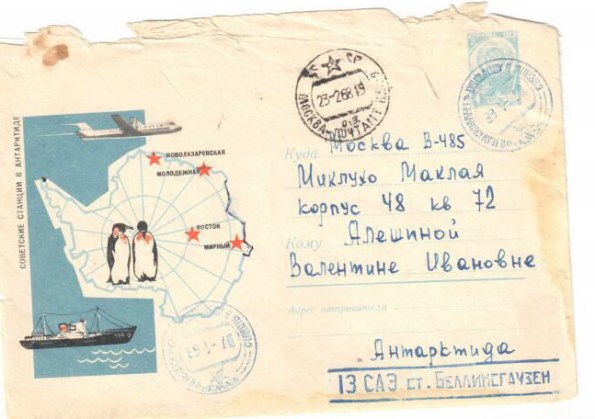 СОВЕТСКИЕ СТАНЦИИ В АНТАРКТИДЕ
НОВОЛАЗАРЕВСКАЯ
МОЛОДЕЖНАЯ
ВОСТОК
МИРНЫЙ
МОСКВА ПОЧТАМТ
23-2 68 19
Куда Москва В-485
Миклухо Маклая
корпус 48 кв 72
Кому Алешиной
Валентине Ивановне
Адрес отправителя
Антарктида
13 САЭ ст. БЕЛЛИНСГАУЗЕН